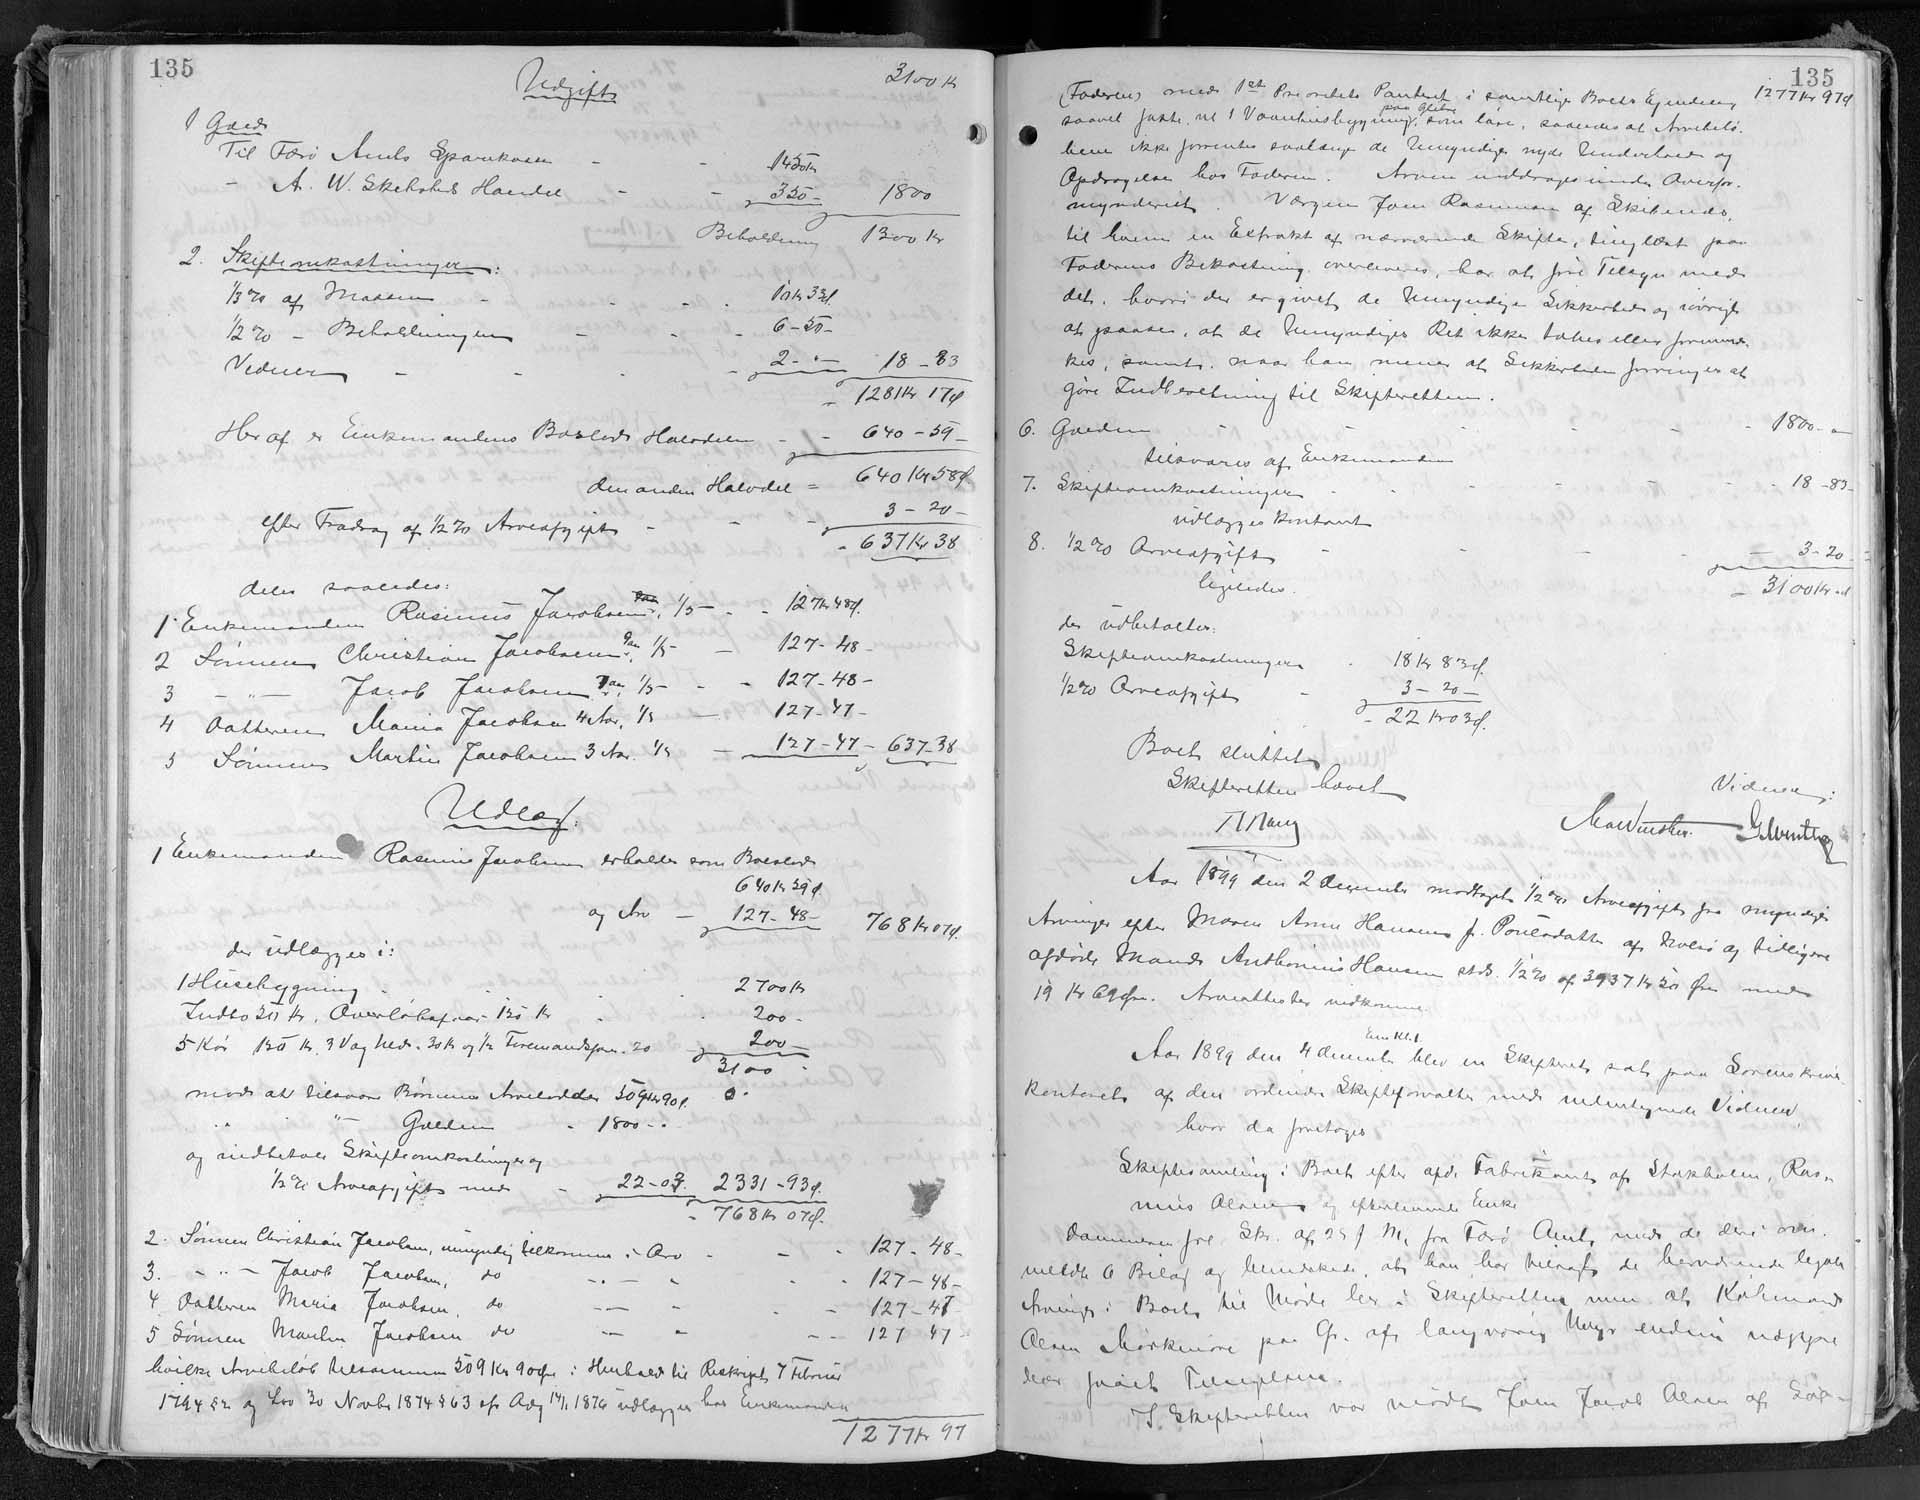 135
Udgift 3100 Kr
1 Gæld
Til Færø Amts Sparekasse - - 1450 Kr
- A. W. Handel - - 350 - 1800
Beholdning 1300 Kr
2. Skifteomkostninger:
1/3 % af Massen - - - 10 Kr 33 Ø.
1/2 % - Beholdningen - - - 6 - 50 -
Vidner - - - - 2 - " - 18 - 83
- 1281 Kr 17 Ø
Heraf er Enkemandens Boeslod Halvdelen - - 640 - 59 -
den anden Halvdel = 640 Kr 58 Ø.
3 - 20 -
efter Fradrag af 1/2 % Arveafgift - - -
- 637 Kr 38
deles saaledes:
1. Enkemanden Rasmus Jacobsen, 1/5 - - 127 Kr 48 Ø.
2 Sønnen Christian Jacobsen 1/5 - 127 - 48 -
3 - " - Jacob Jacobsen 1/5 - - 127 - 48 -
4 Datteren Maria Jacobsen 4 Aar, 1/5 - 127 - 47 -
5 Sønnen Martin Jacobsen 3 Aar. 1/5 - 127 - 47 - 637 - 38
Udlæg:
1 Enkemanden Rasmus Jacobsen erholder som Boeslod
640 Kr 59 Ø.
og Arv - 127 - 48 - 768 Kr 07 Ø.
der udlægges i:
1 Husebygning . . . . 2700 Kr
Indbo 50 Kr, 150 Kr . . 200 -
5 Køer 150 Kr. 3 - 30 Kr og 1/2 - 20 200 -
3100 -
mod at tilsvare Børnenes Arvelodder 509 Kr 90 Ø.
" " Gælden - 1800 - "
og indbetale Skifteomkostninger og
1/2 % Arveafgift med - 22 - 03. 2331 - 93 Ø.
- 768 Kr 07 Ø.
2. Sønnen Christian Jacobsen, umyndig tilkommer i Arv - - - 127 - 48 -
3. - " - Jacob Jacobsen, do - " - " - - 127 - 48 -
4. Datteren Maria Jacobsen, do - - " - - 127 - 47 -
5 Sønnen Martin Jacobsen do - - " - - 127 - 47 -
hvilke Arvebeløb tilsammen 509 Kr 90 Øre i Henhold til Reskript 7 Februar
1794 § 2 og Lov 30 Novbr 1874 § 63 udlægges hos Enkemanden
1277 Kr 97
135
(Faderen) mod 1st Prioritets Panteret i samtlige Boets Ejendele 1277 Kr 97 Ø
saavel faste, nl 1 Vaaningsbygning, som løse, saaledes at Arvebelø-
bene ikke forrentes saalænge de Umyndige nyde Underhold og
Opdragelse hos Faderen. Arven inddrages under Overfor-
mynderiet. Værgen Joen Rasmussen af
til hvem en Extrakt af nærværende Skifte, tinglæst paa
Faderens Bekostning overleveres, har at føre Tilsyn med
det, hvori der er givet de Umyndige Sikkerhed og iøvrigt
at paasee, at de Umyndiges Ret ikke tabes eller formind-
skes, samt, naar han mener at Sikkerheden forringes at
gøre Indberetning til Skifteretten.
6. Gælden - - - - - 1800 - "
tilsvares af Enkemanden
7. Skifteomkostninger - - - - - 18 - 83 -
udlægges kontant
8. 1/2 % Arveafgift - - - - 3 - 20 -
ligeledes. - 3100 Kr
der udbetaltes:
Skifteomkostninger - 18 Kr 83 Ø.
1/2 % Arveafgift - 3 - 20 -
- 22 Kr 03 Ø.
Boet sluttet
Skifteretten hævet
Vidner:
Aar 1899 den 2 December modtaget 1/2 % Arveafgift fra myndige
Arvinger efter Maren Anna Hansen f. Poulsdatter af og tidligere
afdøde Mand Anthonius Hansen stk. 1/2 % af 3937 Kr 50 Øre med
19 Kr 69 Øre. Arveattester vedkomme
Aar 1899 den 4 December blev en Skifteret sat paa Sorenskriver-
kontoret af den ordinære Skifteforvalter med undertegnede Vidner
hvor da foretoges
Skiftesamling i Boet efter afd. Fabrikant af Stokholm, Ras-
mus Olsen og efterlevende Enke
Dommeren frl. Skr. af 25 f. M. fra Færø Amt med de deri om-
meldte 6 Bilag og bemærkede, at han har tilsagt de herværende legale
Arvinger i Boet til Møde her i Skifteretten men at Købmand
Olsen paa Gr. af langvarig Uvejr endnu
I Skifteretten var mødt Joen Jacob Olsen af